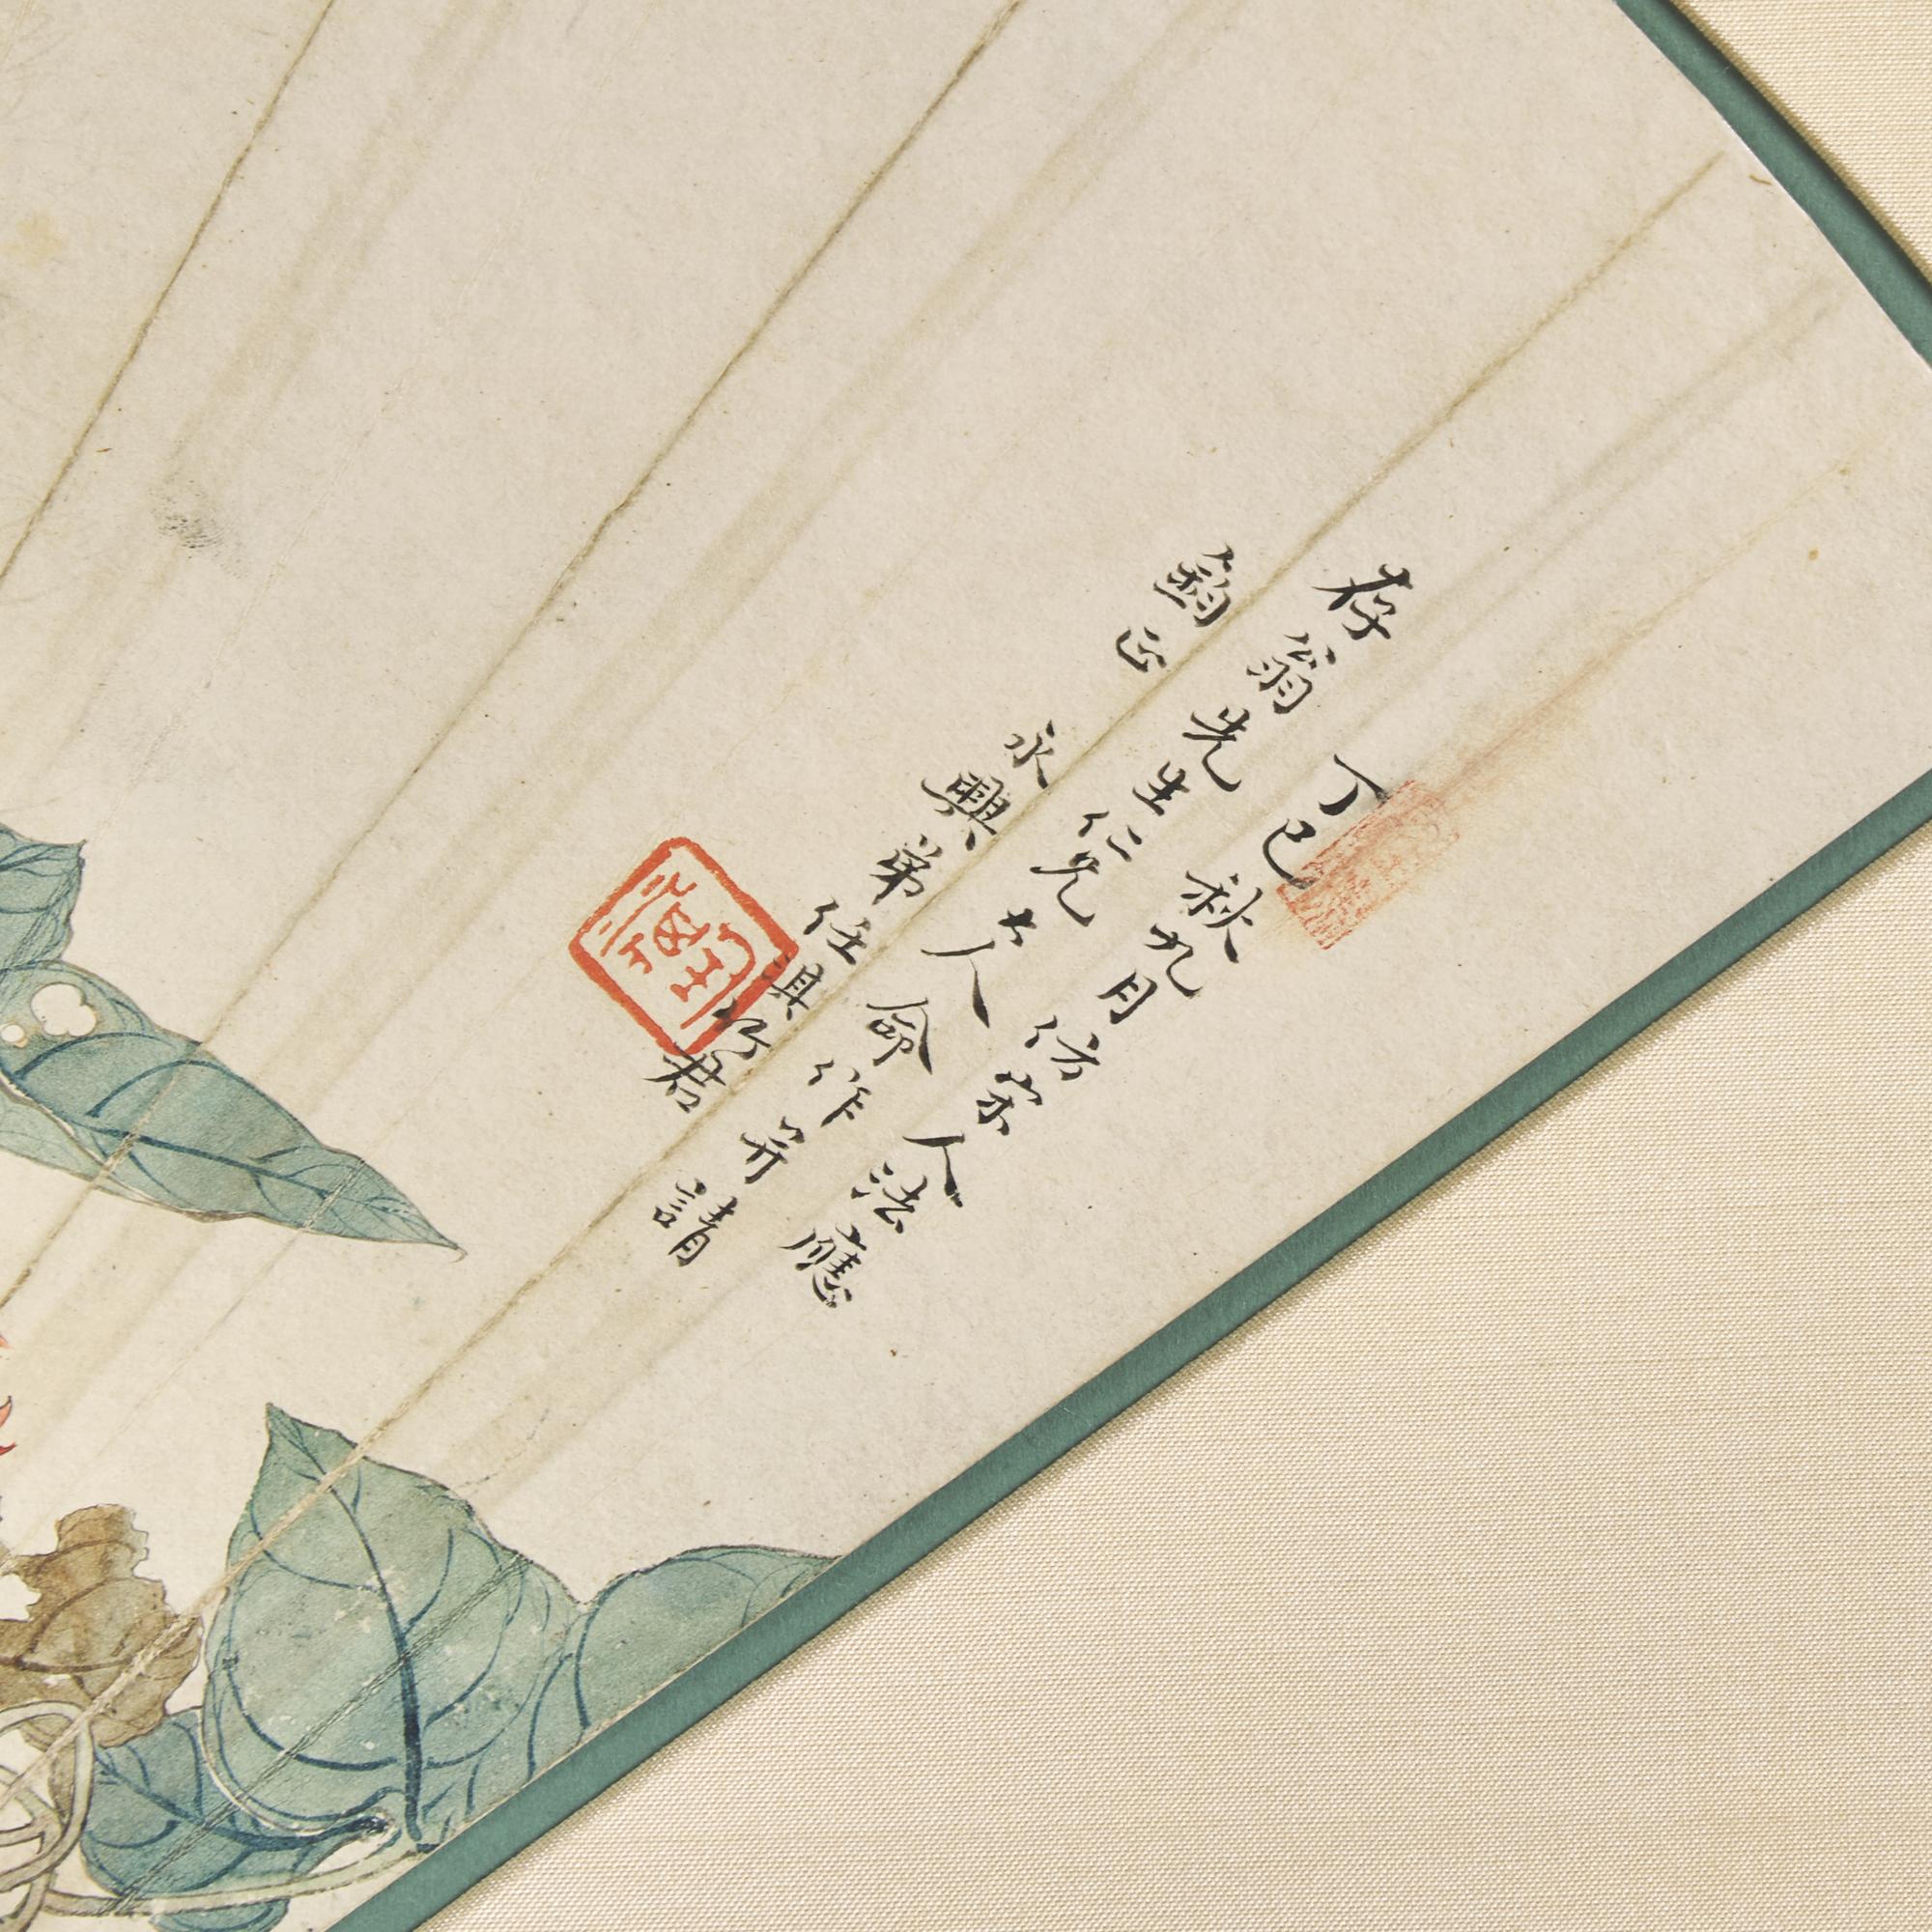 丁巳秋九月仿宋人法應
存翁先生仁兄大人命作并請
鈞正 永興弟任淇竹君